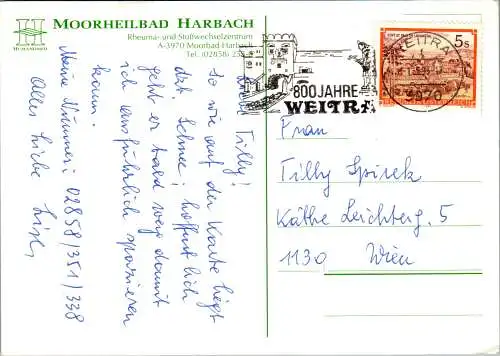 MOORHEILBAD HARBACH
Rheuma- und Stoffwechselzentrum
A-3970 Moorbad Harbach
Tel. (02858) 255
HUMANOMED
Tilly!
so wie auf der Karte liegt
dzt. Schnee; hoffentlich
geht er bald weg damit
ich ausführlich spazieren
kann.
Meine Nummer: 02858/351/338
Alles Liebe Lisl,
800 JAHRE
WEITRA
WEITRA
3970
5s
Frau
Tilly Spirek
Käthe Leichterg. 5
1130 Wien